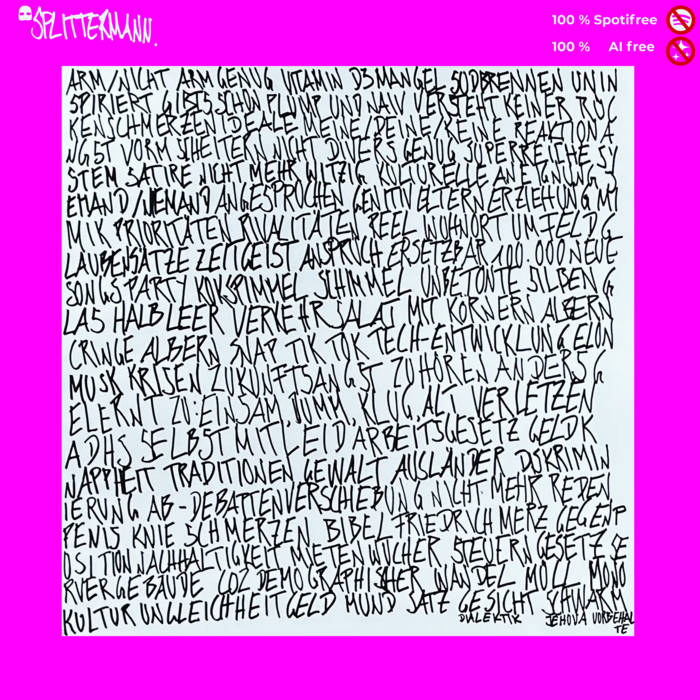 SPLITTERMANN.
100 % Spotifree
100 % AI free
ARM/NICHT ARM GENUG VITAMIN D3 MANGEL SODBRENNEN UNIN
SPIRIERT GIBTS SCHON PLUMP UND NAIV VERSTEHT KEINER RÜC
KENSCHMERZEN IDEALE MEINE/DEINE/KEINE REAKTION A
NGST VORM SCHEITERN NICHT DIVERS GENUG SUPERREICHE SY
STEM SATIRE NICHT MEHR WITZIG KULTURELLE ANEIGNUNG J
EMAND/NIEMAND ANGESPROCHEN GENITIV ELTERN ERZIEHUNG MI
MIK PRIORITÄTEN RIVALITÄTEN REEL WOHNORT UMFELD G
LAUBENSÄTZE ZEITGEIST ANSPRUCH ERSETZBAR 100.000 NEUE
SONGS PARTY KOKS PIMMEL SCHIMMEL UNBETONTE SILBEN G
LAS HALB LEER VERKEHR SALAT MIT KÖRNERN ALBERN
CRINGE ALBERN SNAP TIK TOK TECH-ENTWICKLUNG ELON
MUSK KRISEN ZUKUNFTSANGST ZUHÖREN ANDERS G
ELERNT ZU: EINSAM, DUMM, KLUG, ALT VERLETZEN
ADHS SELBSTMITLEID ARBEITSGESETZ GELDK
NAPPHEIT TRADITIONEN GEWALT AUSLÄNDER DSKRIMIN
IERUNG AB-DEBATTENVERSCHIEBUNG NICHT MEHR REDEN
PENIS KNIE SCHMERZEN BIBEL FRIEDRICH MERZ GEGENP
OSITION NACHHALTIGKEIT MIETEN WUCHER STEUERN GESETZ SE
RVERGEBÄUDE CO2 DEMOGRAPHISCHER WANDEL MOLL MONO
KULTUR UNGLEICHHEIT GELD MUND SATZ GESICHT SCHWARM
DIALEKTIK JEHOVA VORBEHAL
TE